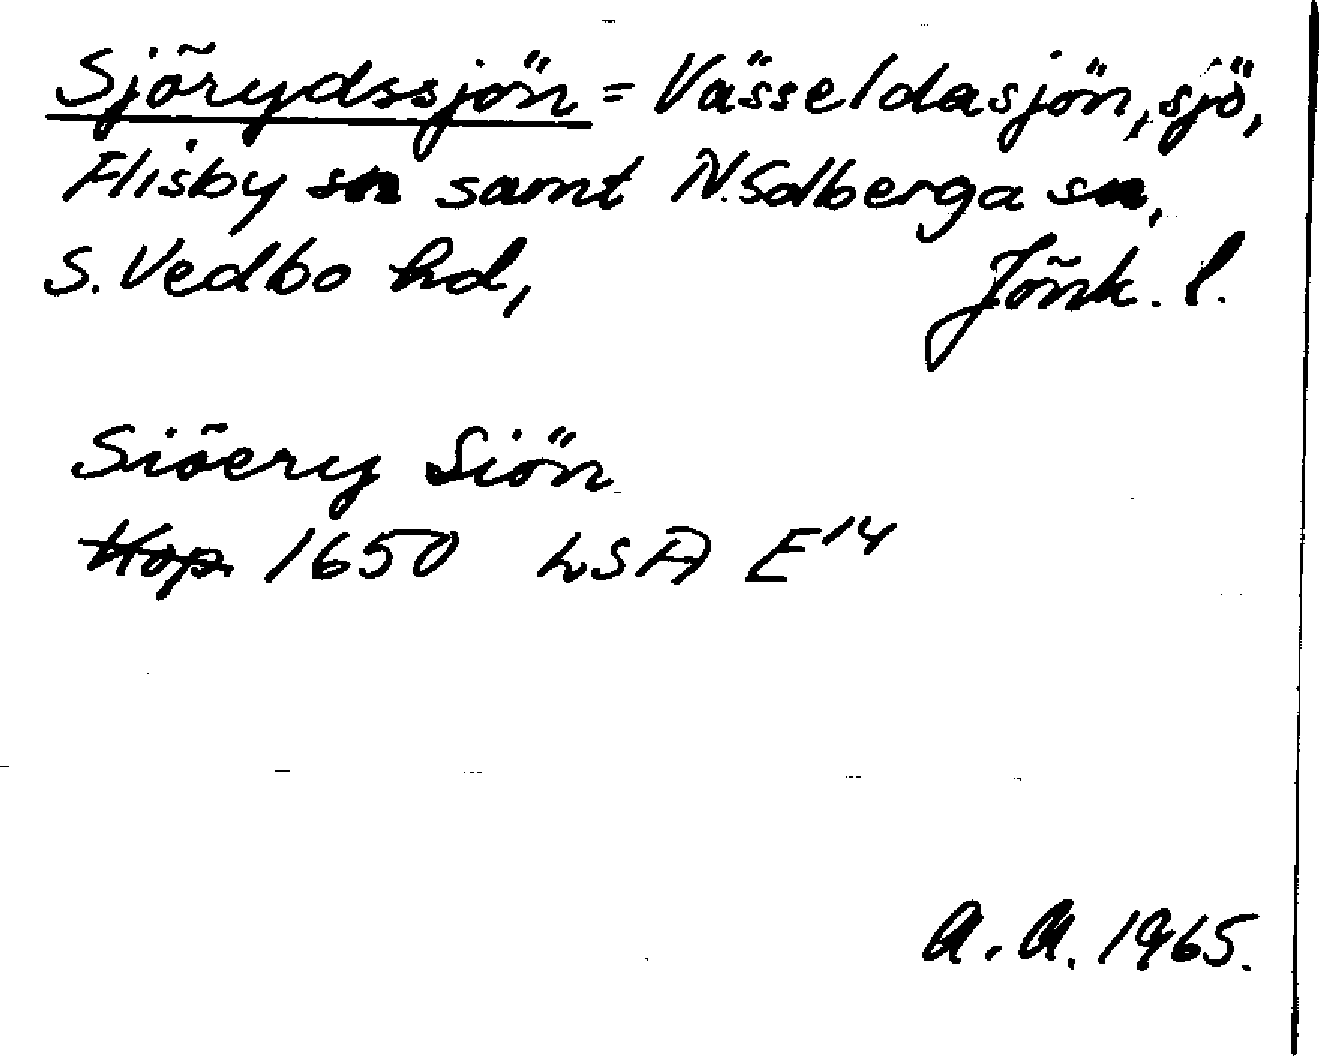 Sjörydssjön = Vässeldasjön, sjö,
Flisby sn samt N. Solberga sn,
S. Vedbo hd, Jönk. l.
Siöery Siön
Kop. 1650 LSA E14
A. A. 1965.